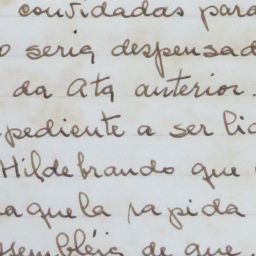 convidadas para
o seria despensad
da Ata anterior.
pediente a ser lid
Hildebrando que
naquela rapida
ssembléia de que